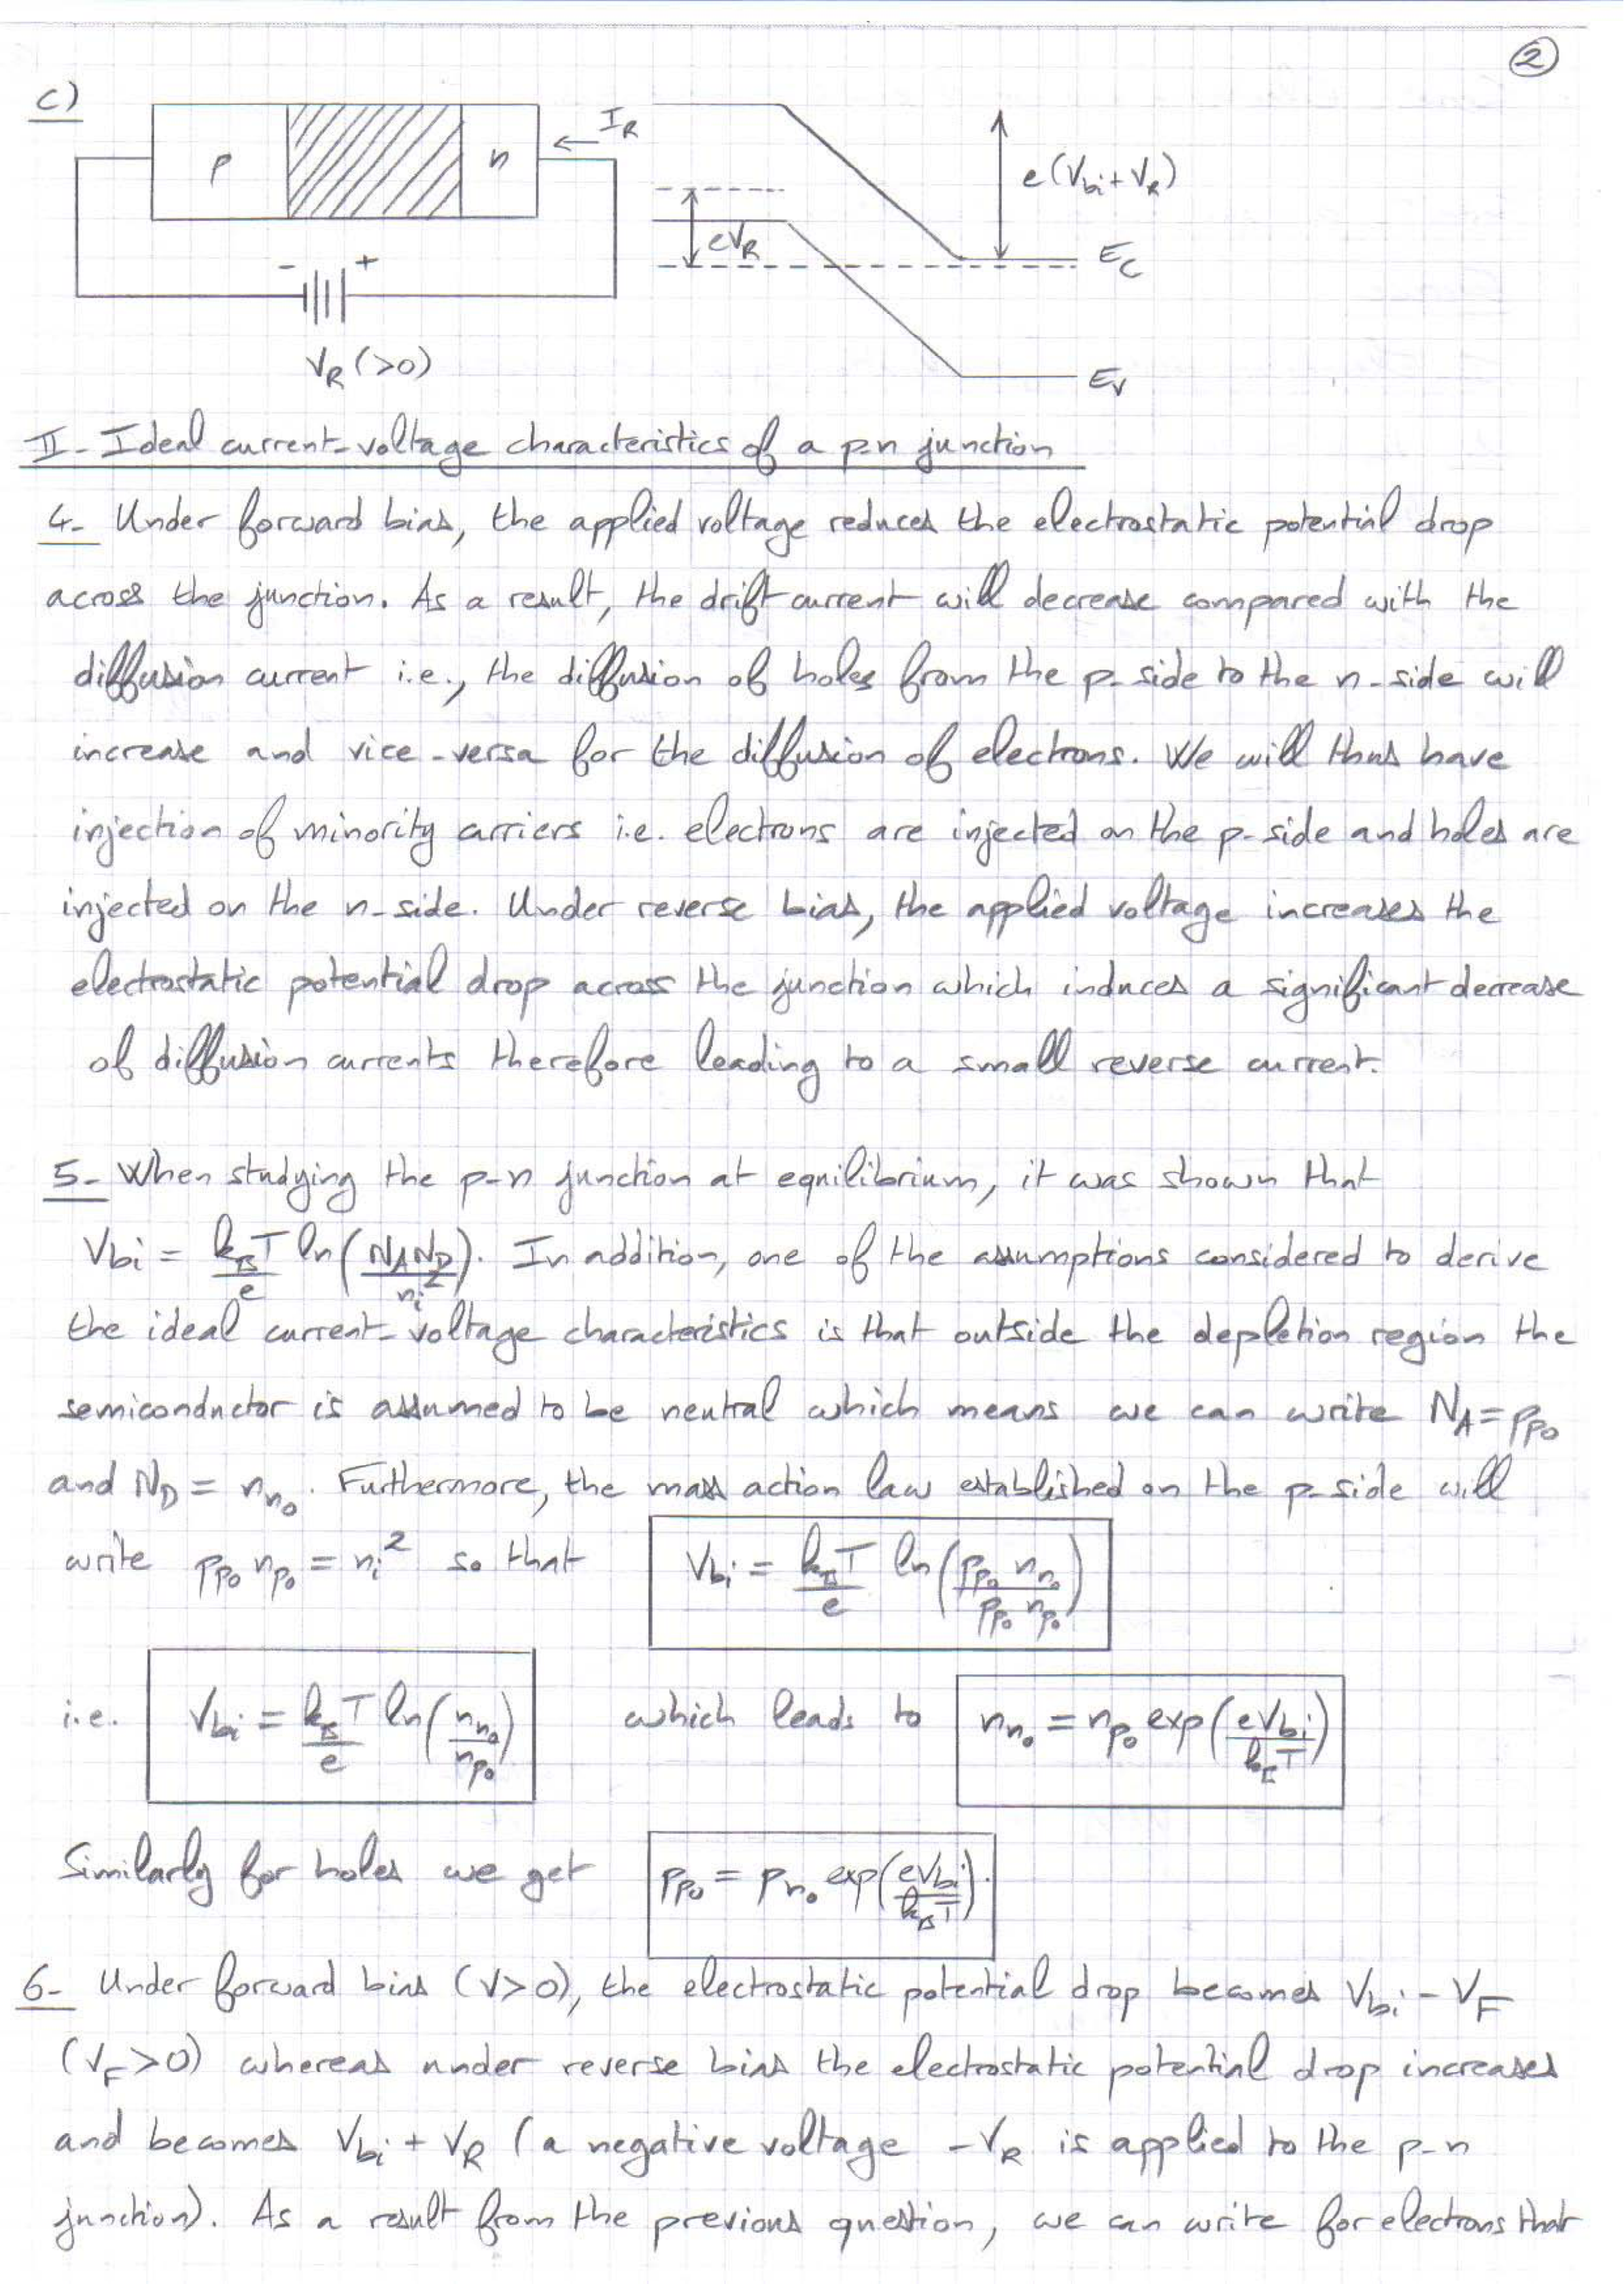 ②
c)
p n I_R
e(V_bi + V_R)
eV_R
E_C
- +
V_R (>0)
E_V
II - Ideal current-voltage characteristics of a p-n junction
4- Under forward bias, the applied voltage reduces the electrostatic potential drop
across the junction. As a result, the drift current will decrease compared with the
diffusion current i.e., the diffusion of holes from the p-side to the n-side will
increase and vice-versa for the diffusion of electrons. We will thus have
injection of minority carriers i.e. electrons are injected on the p-side and holes are
injected on the n-side. Under reverse bias, the applied voltage increases the
electrostatic potential drop across the junction which induces a significant decrease
of diffusion currents therefore leading to a small reverse current.
5- When studying the p-n junction at equilibrium, it was shown that
V_bi = k_BT/e ln(N_A N_D / n_i^2). In addition, one of the assumptions considered to derive
the ideal current-voltage characteristics is that outside the depletion region the
semiconductor is assumed to be neutral which means we can write N_A = p_p0
and N_D = n_n0. Futhermore, the mass action law established on the p-side will
write p_p0 n_p0 = n_i^2 so that V_bi = k_BT/e ln(p_p0 n_n0 / p_p0 n_p0)
i.e. V_bi = k_BT/e ln(n_n0 / n_p0) which leads to n_n0 = n_p0 exp(eV_bi / k_BT)
Similarly for holes we get p_p0 = p_n0 exp(eV_bi / k_BT).
6- Under forward bias (V>0), the electrostatic potential drop becomes V_bi - V_F
(V_F>0) whereas under reverse bias the electrostatic potential drop increases
and becomes V_bi + V_R (a negative voltage -V_R is applied to the p-n
junction). As a result from the previous question, we can write for electrons that